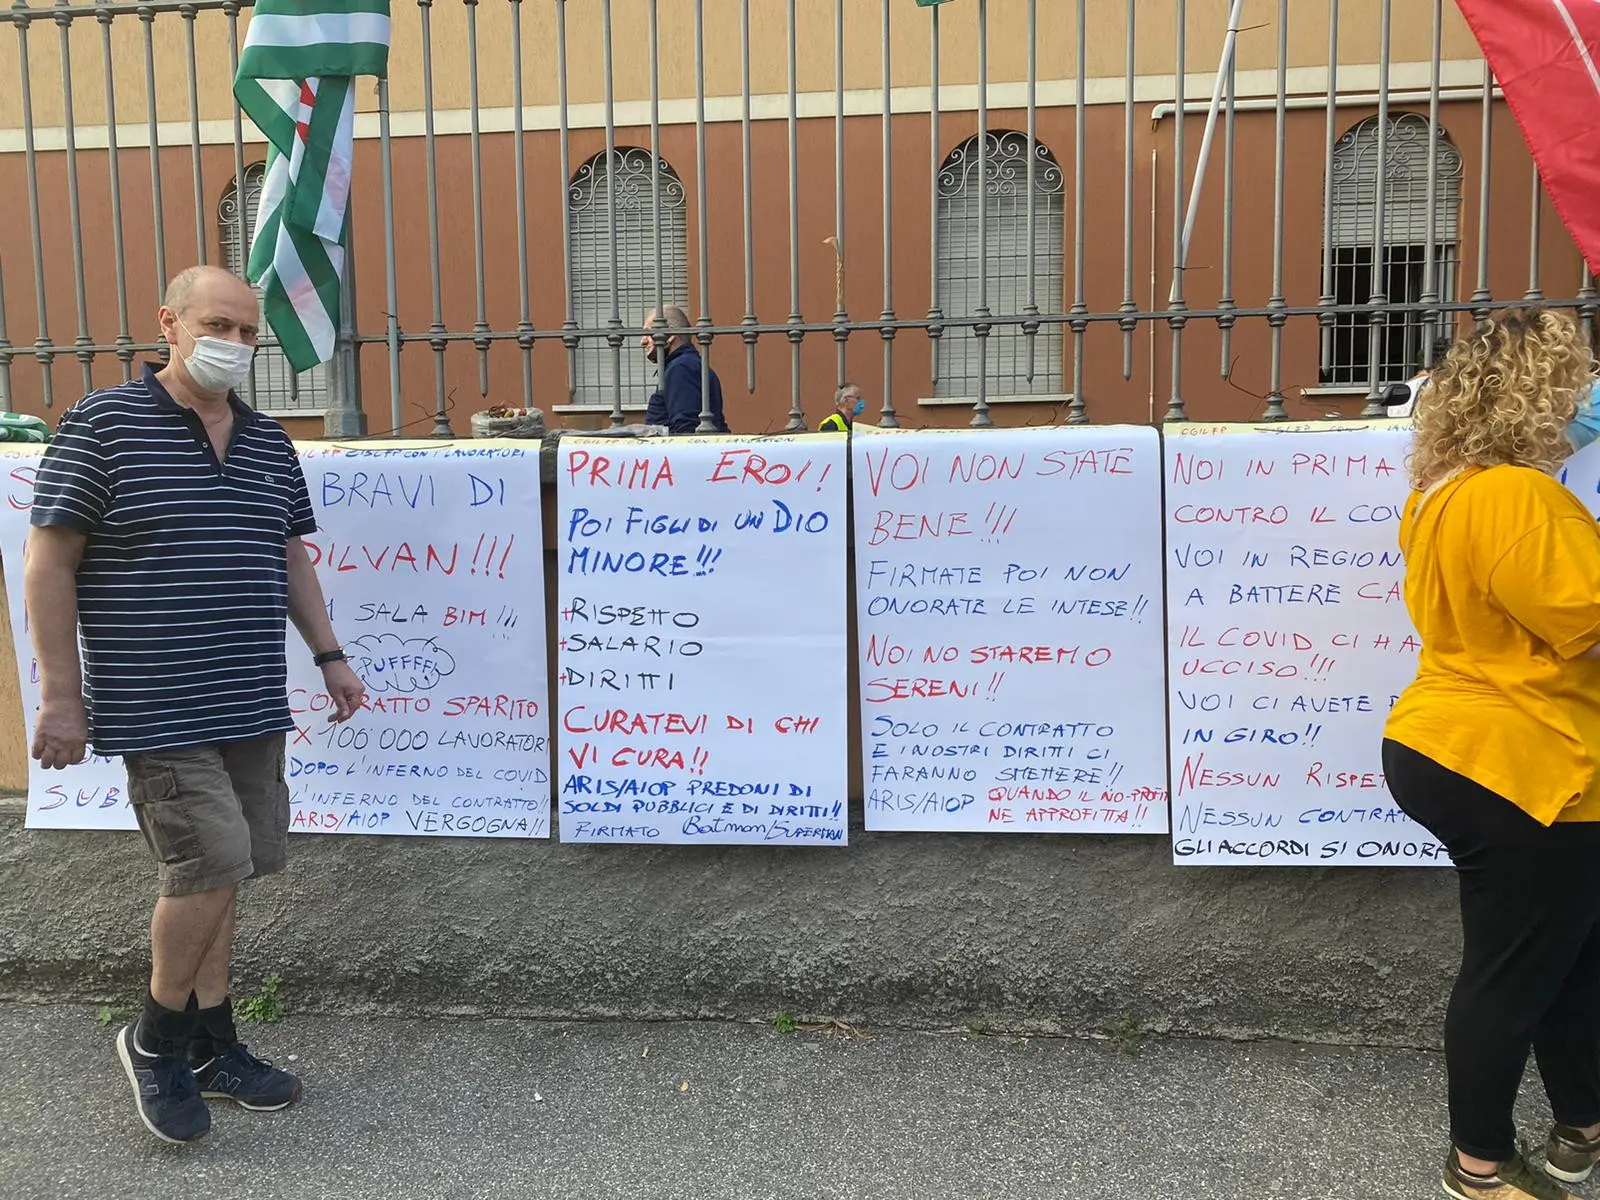 CGIL FP CISLFP CON I LAVORATORI
BRAVI DI
SILVAN!!!
SALA BIM!!!
PUFFFF!
CONTRATTO SPARITO
X 100000 LAVORATORI
DOPO L'INFERNO DEL COVID
L'INFERNO DEL CONTRATTO!!
ARIS/AIOP VERGOGNA!!
PRIMA EROI!
POI FIGLI DI UN DIO
MINORE!!!
+RISPETTO
+SALARIO
+DIRITTI
CURATEVI DI CHI
VI CURA!!
ARIS/AIOP PREDONI DI
SOLDI PUBBLICI E DI DIRITTI!!
FIRMATO Batman/SUPERMAN
VOI NON STATE
BENE!!!
FIRMATE POI NON
ONORATE LE INTESE!!
NOI NO STAREMO
SERENI!!
SOLO IL CONTRATTO
E I NOSTRI DIRITTI CI
FARANNO SMETTERE!!
ARIS/AIOP QUANDO IL NO-PROFIT
NE APPROFITTA!!
CGIL FP CISLFP CON I LAV
NOI IN PRIMA
CONTRO IL COV
VOI IN REGION
A BATTERE CA
IL COVID CI HA
UCCISO!!!
VOI CI AVETE P
IN GIRO!!
NESSUN RISPET
NESSUN CONTRAT
GLI ACCORDI SI ONORA